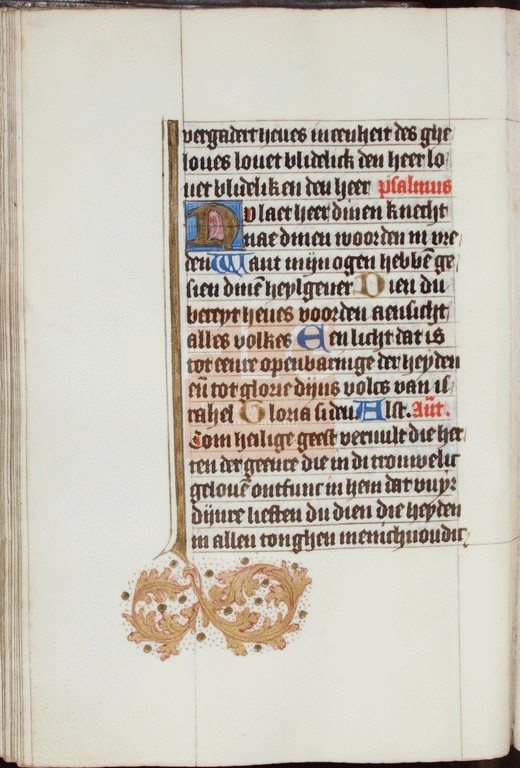 vergadert heues in eenheit des ghe
loues louet blidelick den heer lo
uet blidelik en den heer psalmus
Nv laet heer dinen knecht
nae dinen woorden in vre
den Want mijn ogen hebbē ge
sien dinē heylgeuer Dien du
bereyt heues voorden aensicht
alles volkes Een licht dat is
tot eenre openbaringe der heyden
eñ tot glorie dijns volcs van is
rahel Gloria si den Alst. Añt.
Com heilige geest veruult die her
ten der geenre die in di trouwelic
gelouē ontfunc in hem dat vuyr
dijnre liefften du dien die heyden
in allen tonghen menichuoudic